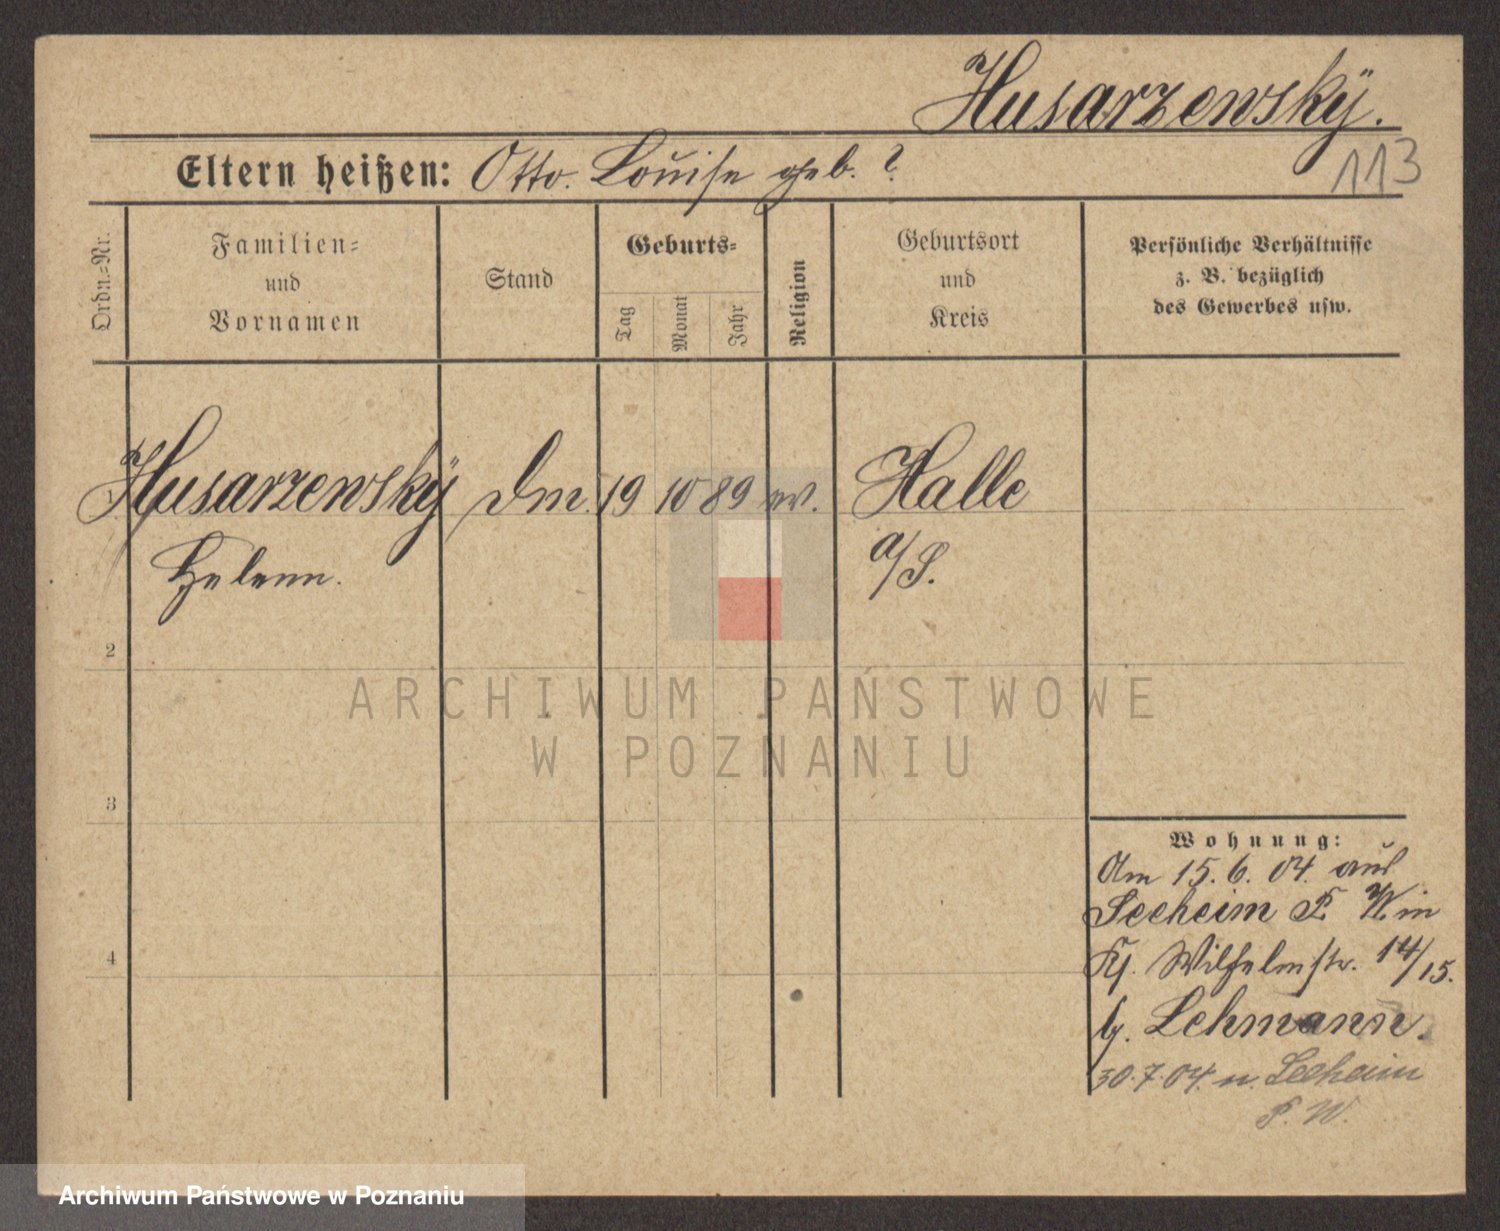 Husarzewsky.
113
Eltern heißen: Otto. Louise geb. ?
Ordn.=Nr.
Familien=
und
Vornamen
Stand
Geburts=
Tag
Monat
Jahr
Religion
Geburtsort
und
Kreis
Persönliche Verhältnisse
z. B. bezüglich
des Gewerbes usw.
1 Husarzewsky 19 10 89 ev. Halle
Helene. a/S.
2
3
4
Wohnung:
Am 15.6.04. aus
Seeheim P. W. in
Wilhelmstr. 14/15.
b. Lehmann.
30.7.04. n. Seeheim
P. W.
ARCHIWUM PAŃSTWOWE
W POZNANIU
Archiwum Państwowe w Poznaniu